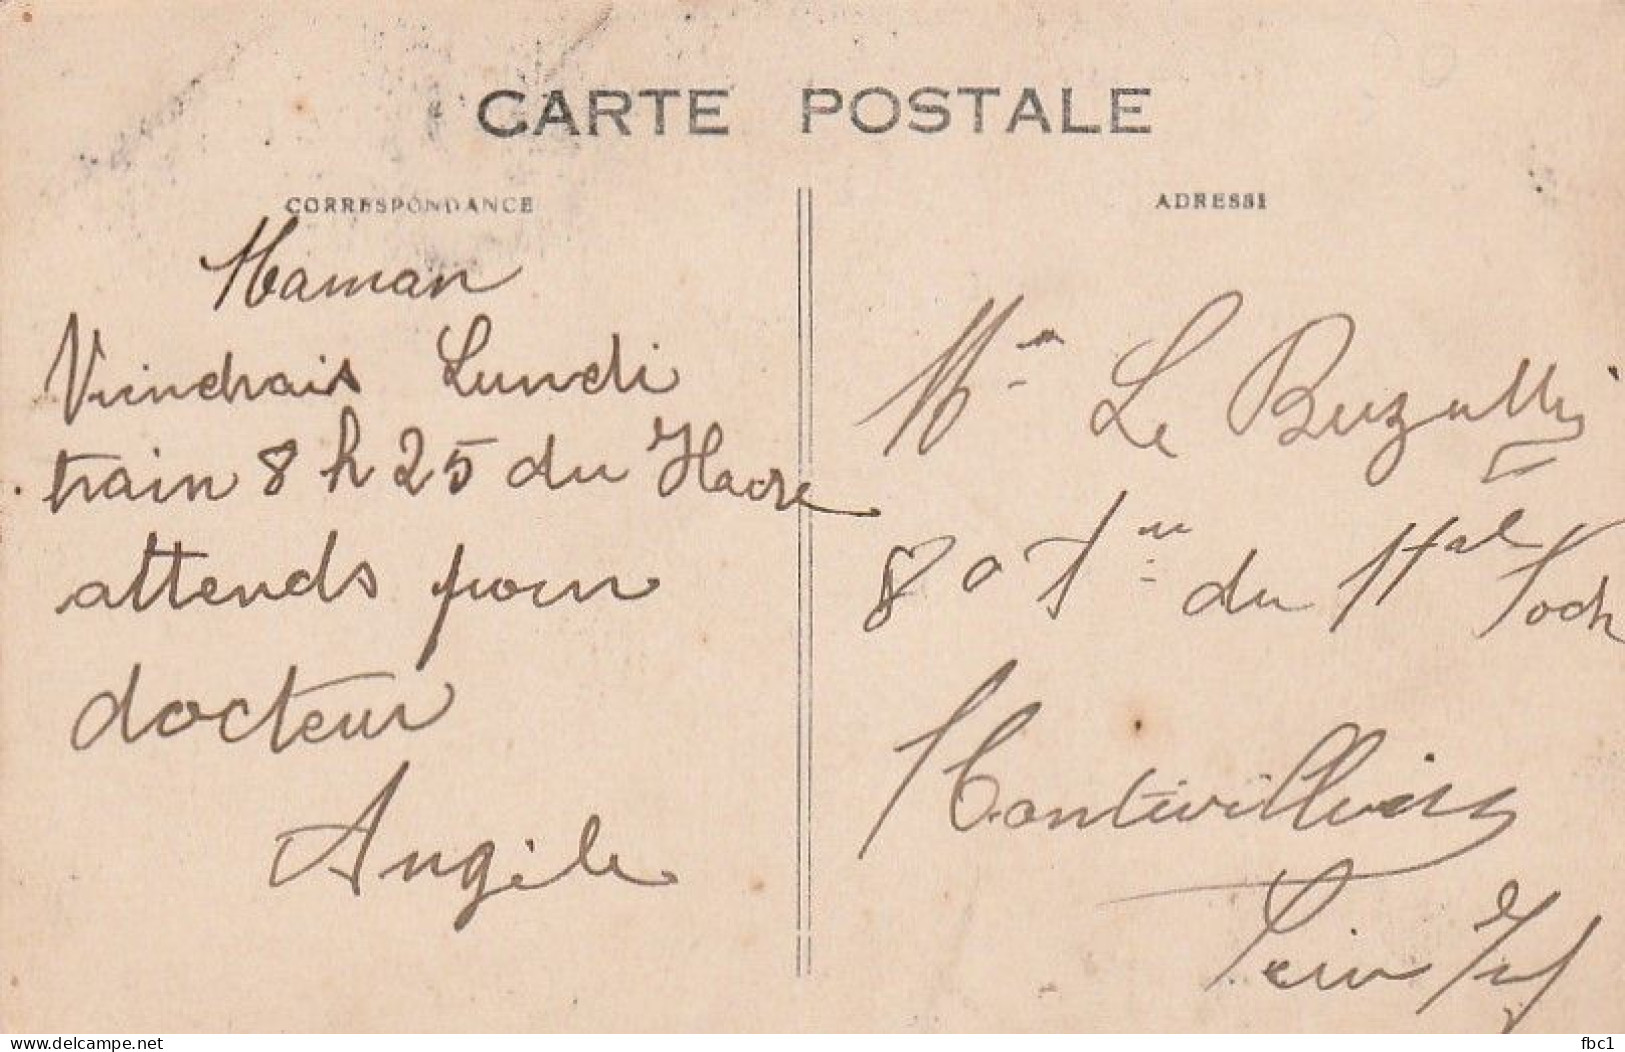 CARTE POSTALE
CORRESPONDANCE
Maman
Viendrais Lundi
train 8 h 25 du Havre
attends pour
docteur
Angèle
ADRESSE
Mme Le Buzullier
80 du Mal Foch
Montivilliers
Seine Inf
delcampe.net
fbc1